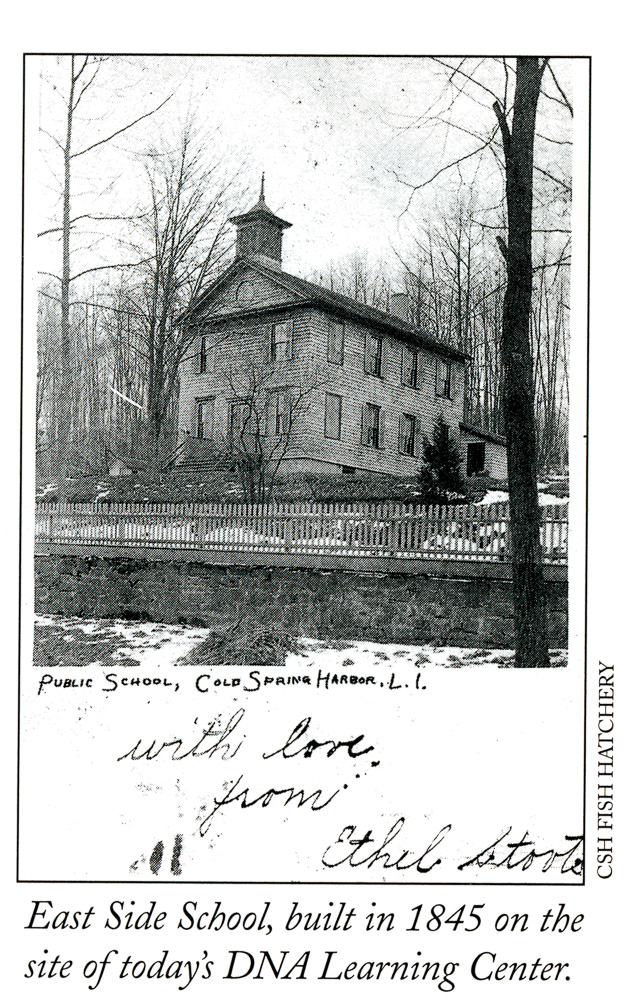 PUBLIC SCHOOL, COLD SPRING HARBOR, L. I.
with love,
from
Ethel
CSH FISH HATCHERY
East Side School, built in 1845 on the
site of today's DNA Learning Center.